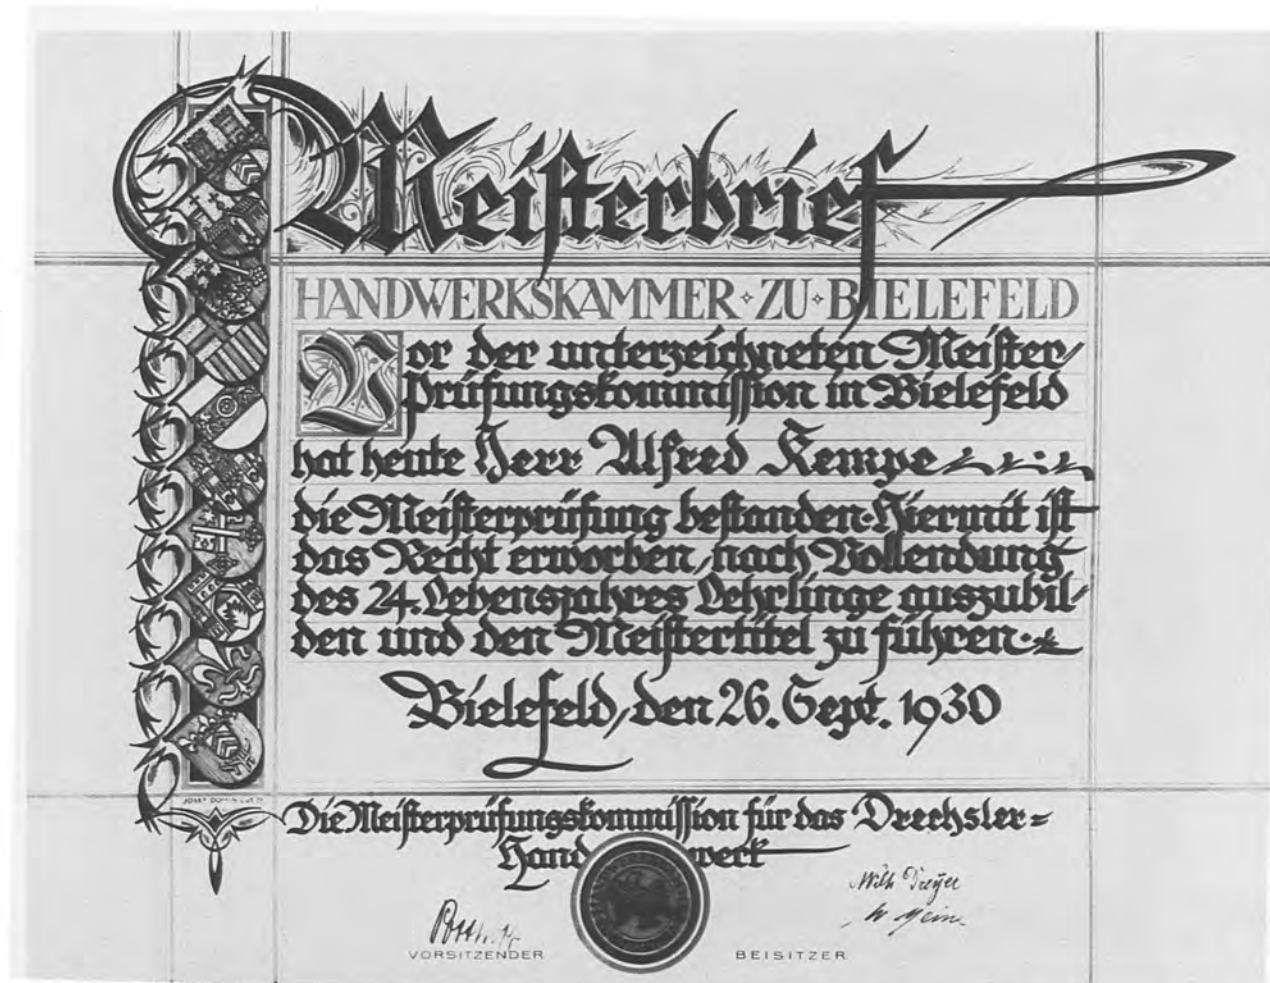 Meisterbrief
HANDWERKSKAMMER ZU BIELEFELD
Vor der unterzeichneten Meister-
Prüfungskommission in Bielefeld
hat heute Herr Alfred Kempe
die Meisterprüfung bestanden. Hiermit ist
das Recht erworben, nach Vollendung
des 24. Lebensjahres Lehrlinge auszubil-
den und den Meistertitel zu führen.
Bielefeld, den 26. Sept. 1930
Die Meisterprüfungskommission für das Drechsler=
Hand werk
Wilh Dreyer
VORSITZENDER
BEISITZER